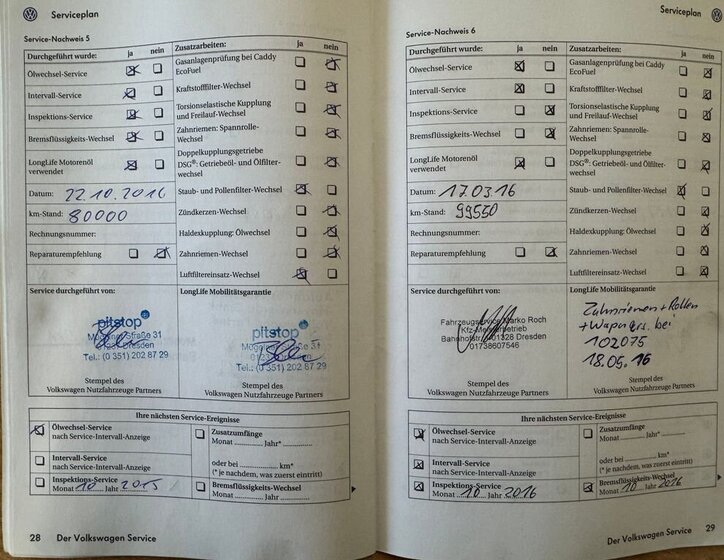 Serviceplan
Service-Nachweis 5
Durchgeführt wurde: ja nein
Ölwechsel-Service
Intervall-Service
Inspektions-Service
Bremsflüssigkeits-Wechsel
LongLife Motorenöl
verwendet
Datum: 22.10.2016
km-Stand: 80000
Rechnungsnummer:
Reparaturempfehlung
Zusatzarbeiten: ja nein
Gasanlagenprüfung bei Caddy
EcoFuel
Kraftstofffilter-Wechsel
Torsionselastische Kupplung
und Freilauf-Wechsel
Zahnriemen: Spannrolle-
Wechsel
Doppelkupplungsgetriebe
DSG®: Getriebeöl- und Ölfilter-
wechsel
Staub- und Pollenfilter-Wechsel
Zündkerzen-Wechsel
Haldexkupplung: Ölwechsel
Zahnriemen-Wechsel
Luftfiltereinsatz-Wechsel
Service durchgeführt von:
pitstop
Straße 31
Dresden
Tel.: (0 351) 202 87 29
Stempel des
Volkswagen Nutzfahrzeuge Partners
LongLife Mobilitätsgarantie
pitstop
Dresden
Tel.: (0 351) 202 87 29
Stempel des
Volkswagen Nutzfahrzeuge Partners
Ihre nächsten Service-Ereignisse
Ölwechsel-Service
nach Service-Intervall-Anzeige
Intervall-Service
nach Service-Intervall-Anzeige
Inspektions-Service
Monat 10 Jahr 2015
Zusatzumfänge
Monat Jahr*
oder bei km*
(* je nachdem, was zuerst eintritt)
Bremsflüssigkeits-Wechsel
Monat Jahr
28 Der Volkswagen Service
Serviceplan
Service-Nachweis 6
Durchgeführt wurde: ja nein
Ölwechsel-Service
Intervall-Service
Inspektions-Service
Bremsflüssigkeits-Wechsel
LongLife Motorenöl
verwendet
Datum: 17.03.16
km-Stand: 99550
Rechnungsnummer:
Reparaturempfehlung
Zusatzarbeiten: ja nein
Gasanlagenprüfung bei Caddy
EcoFuel
Kraftstofffilter-Wechsel
Torsionselastische Kupplung
und Freilauf-Wechsel
Zahnriemen: Spannrolle-
Wechsel
Doppelkupplungsgetriebe
DSG®: Getriebeöl- und Ölfilter-
wechsel
Staub- und Pollenfilter-Wechsel
Zündkerzen-Wechsel
Haldexkupplung: Ölwechsel
Zahnriemen-Wechsel
Luftfiltereinsatz-Wechsel
Service durchgeführt von:
Fahrzeugservice Marko Roch
Kfz-Meisterbetrieb
01328 Dresden
01738607546
Stempel des
Volkswagen Nutzfahrzeuge Partners
LongLife Mobilitätsgarantie
Zahnriemen + Rollen
bei
102075
18.05.16
Stempel des
Volkswagen Nutzfahrzeuge Partners
Ihre nächsten Service-Ereignisse
Ölwechsel-Service
nach Service-Intervall-Anzeige
Intervall-Service
nach Service-Intervall-Anzeige
Inspektions-Service
Monat 10 Jahr 2016
Zusatzumfänge
Monat Jahr*
oder bei km*
(* je nachdem, was zuerst eintritt)
Bremsflüssigkeits-Wechsel
Monat 10 Jahr 2016
Der Volkswagen Service 29